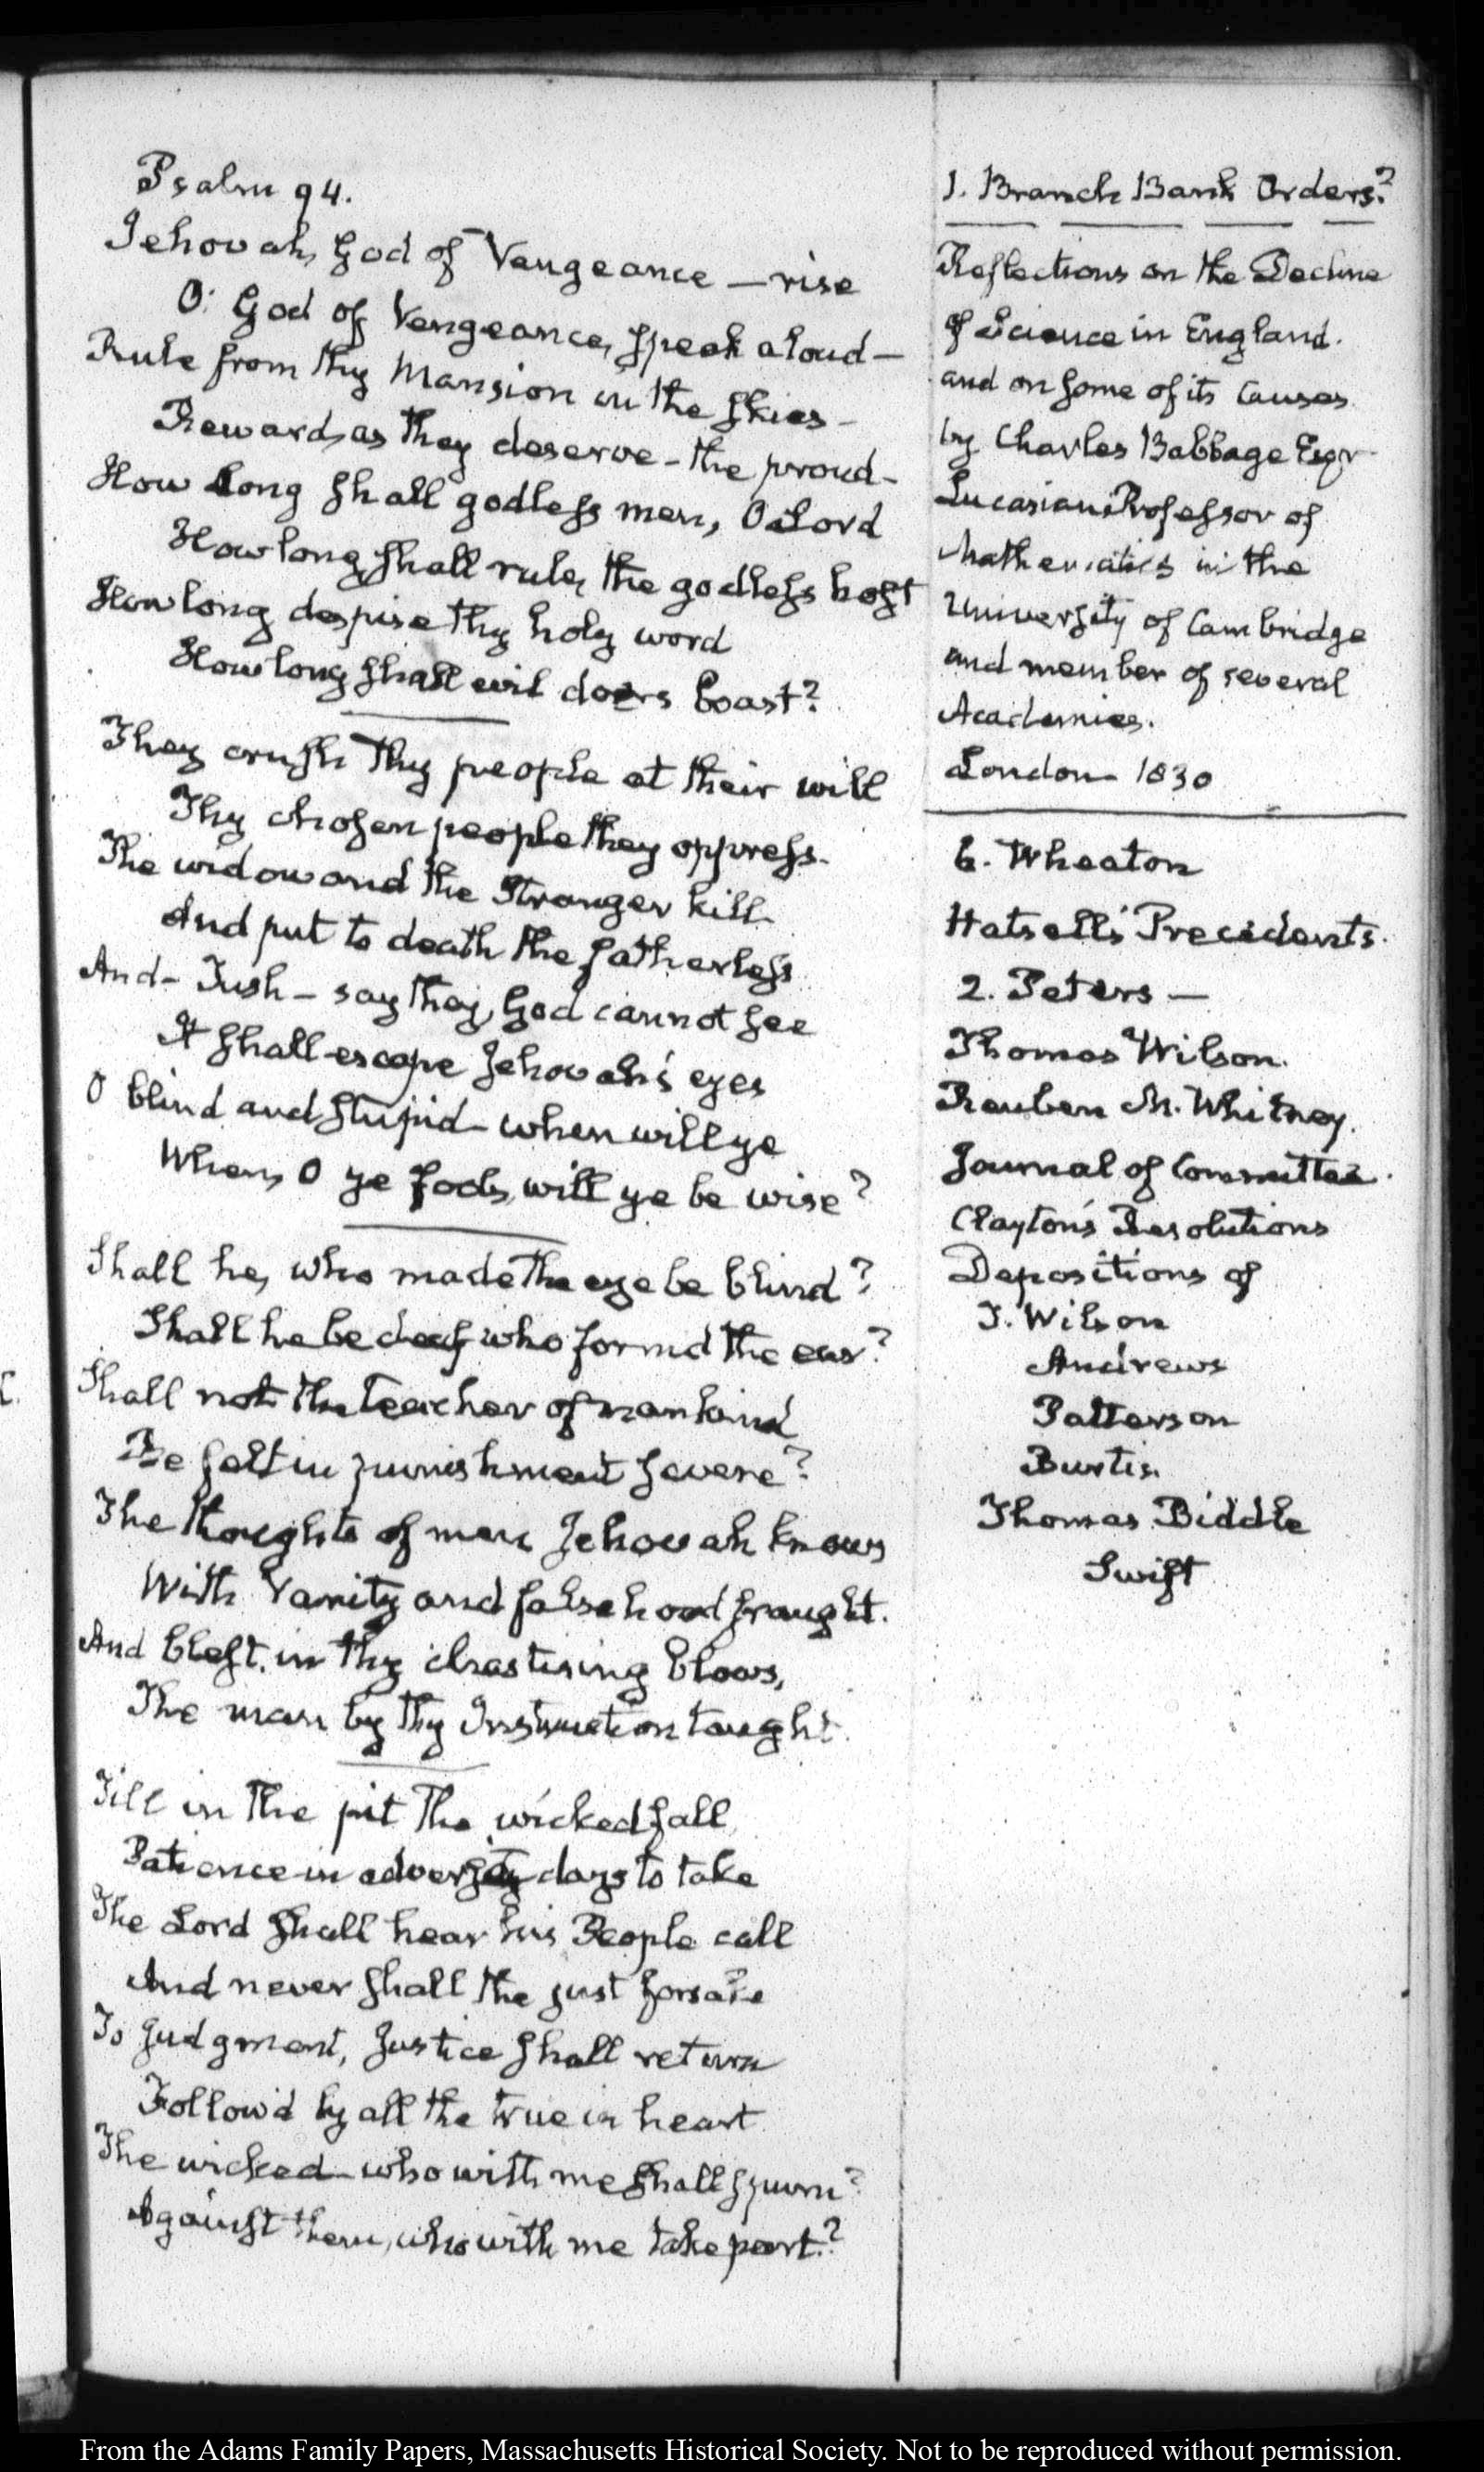 Psalm 94.
Jehovah, God of Vengeance — rise
O! God of Vengeance, speak aloud —
Rule from thy Mansion in the skies —
Reward, as they deserve - the proud -
How long shall godless men, O Lord
How long shall rule, the godless host
How long despise thy holy word
How long shall evil doers boast?
They crush thy people at their will
Thy chosen people they oppress.
The widow and the Stranger kill
And put to death the fatherless
And - Tush - say they, God cannot see
It shall escape Jehovah's eyes
O blind and stupid - when will ye
When, O ye fools, will ye be wise?
Shall he, who made the eye be blind?
Shall he be deaf who formd the ear?
Shall not the teacher of mankind
Be felt in punishment severe?
The thoughts of man Jehovah knows
With Vanity and falsehood fraught.
And blest, in thy chastising blows,
The man by thy Instruction taught.
Till in the pit the wicked fall
Patience in adversity days to take
The Lord shall hear his People call
And never shall the just forsake
To judgment, Justice shall return
Follow'd by all the true in heart
The wicked who with me shall spurn?
Against them, who with me take part?
1. Branch Bank Orders?
Reflections on the Decline
of Science in England.
and on some of its Causes
by Charles Babbage Esqr
Lucasian Professor of
Mathematics in the
University of Cambridge
and member of several
Academies.
London 1830
6. Wheaton
Hatsell's Precedents.
2. Peters —
Thomas Wilson.
Reuben M. Whitney.
Journal of Committee.
Clayton's Resolutions
Depositions of
T. Wilson
Andrews
Patterson
Burtis.
Thomas Biddle
Swift
From the Adams Family Papers, Massachusetts Historical Society. Not to be reproduced without permission.